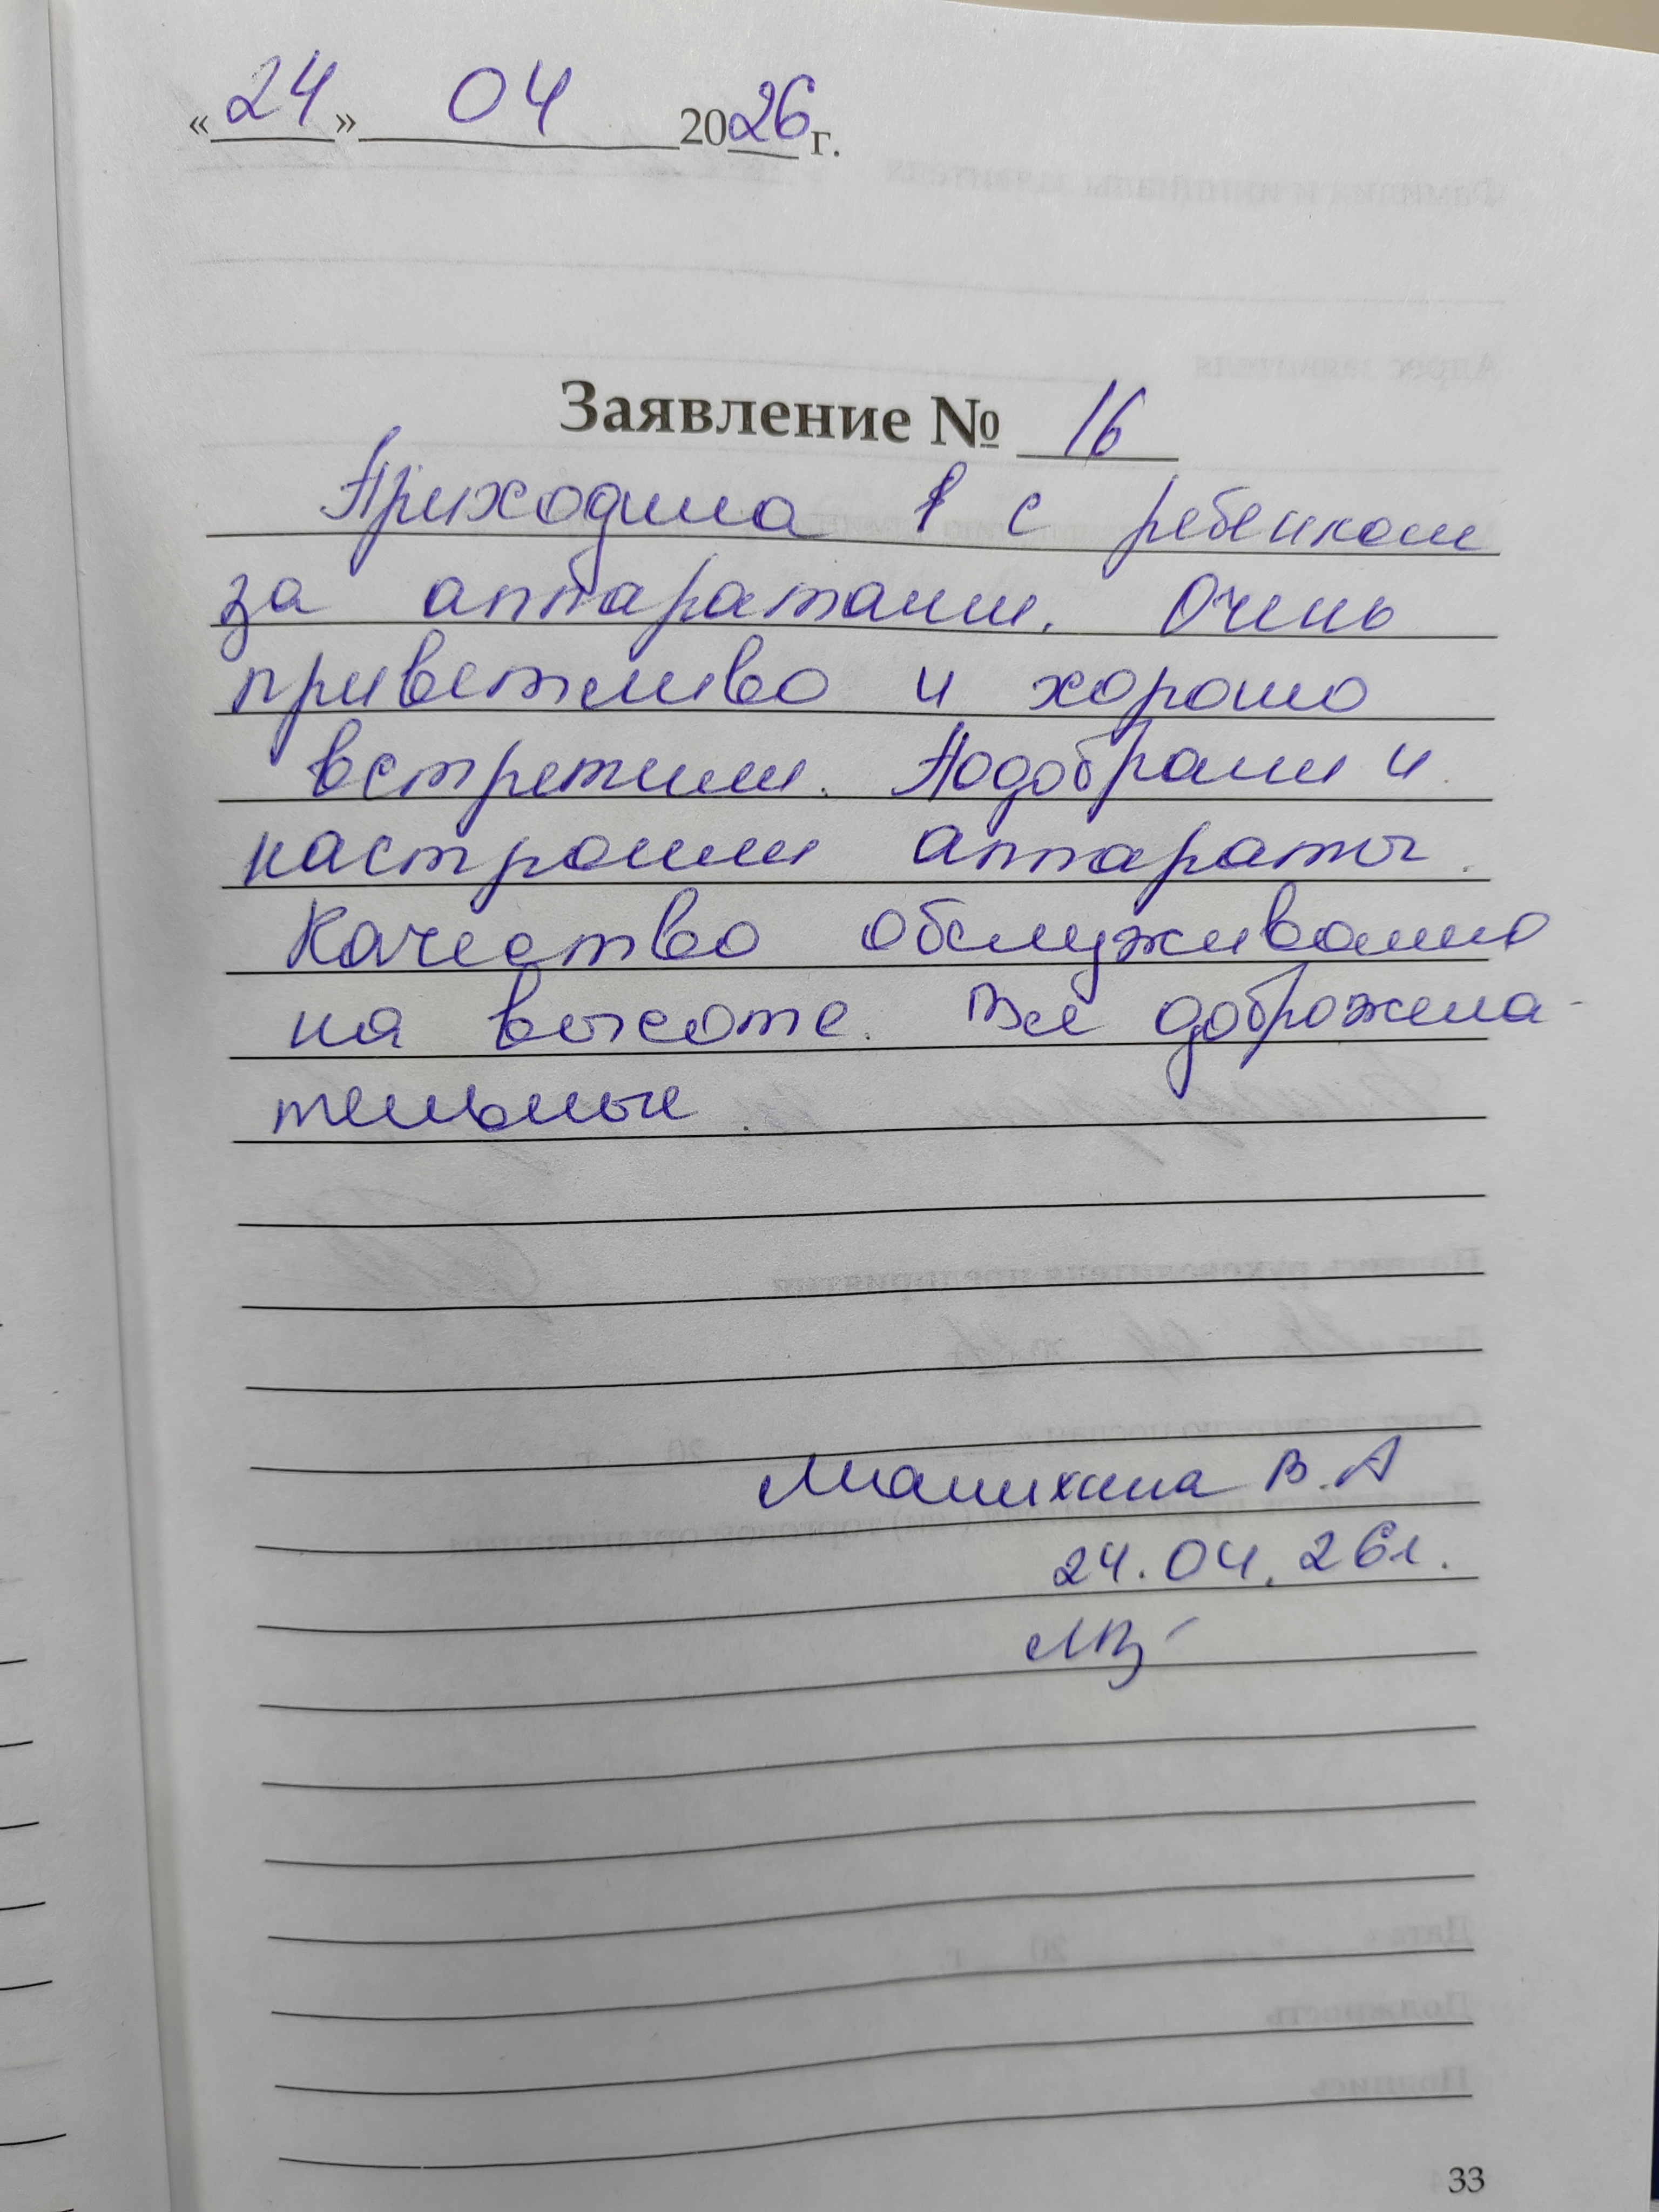 «24» 04 2026 г.
Заявление № 16
Приходила с ребенком
за аппаратами. Очень
приветливо и хорошо
встретили. Подобрали и
настроили аппараты.
Качество обслуживание
на высоте. Все доброжела-
тельные.
В.А
24.04.26г.
33